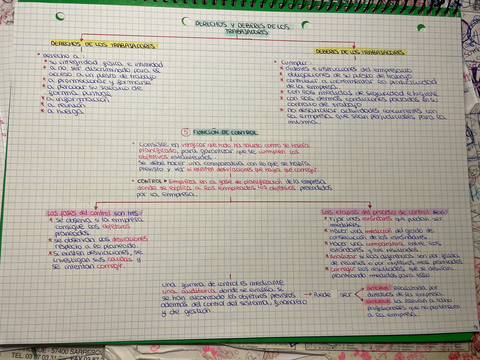 DERECHOS Y DEBERES DE LOS
TRABAJADORES
DERECHOS DE LOS TRABAJADORES
* derecho a
* su integridad física e intimidad
* a no ser discriminado para el
acceso a un puesto de trabajo
* a promocionarse y formarse
* a percibir su salario de
forma puntual
* a información
* a reunión
* a huelga
DEBERES DE LOS TRABAJADORES
* Cumplir
* órdenes e instrucciones del empresario
* obligaciones de su puesto de trabajo
* contribuir a la productividad
de la empresa
* con las medidas de seguridad e higiene
* con las demás condiciones pactadas en su
contrato de trabajo
* no realizar actividades concurrentes con
la empresa que sean perjudiciales para la
misma
5 FUNCIÓN DE CONTROL
* Consiste en verificar que todo ha salido como se había
planificado, para garantizar que se cumplen los
objetivos establecidos
Se debe hacer una comparativa con lo que se había
previsto y ver si existen desviaciones que haya que corregir.
* CONTROL → Empieza en la fase de planificación de la empresa
donde se explica a los empleados los objetivos pretendidos
por la empresa
Las fases del control son tres:
* se observa si la empresa
consigue los objetivos
planeados
* se observan las desviaciones
respecto a lo planeado
* Si existen desviaciones, se
investigan sus causas y
se intentan corregir.
Las etapas del proceso de control son:
* Fijar unos estándares que puedan ser
medibles
* Hacer una medición del grado de
consecución de los estándares.
* Hacer una comparativa entre los
estándares y los resultados
* Analizar si los
de recursos o por objetivos mal planeados
* Corregir los resultados que se desvían
planteando medidas para ello
una forma de control es mediante
una auditoría donde se analiza si
se han alcanzado los objetivos previstos
además del control del sistema, financiero
y de gestión
→ Puede ser
INTERNA: realizada por
miembros de la empresa
EXTERNA: la llevan a cabo
profesionales que no pertenecen
a la empresa
57400 SARREBO